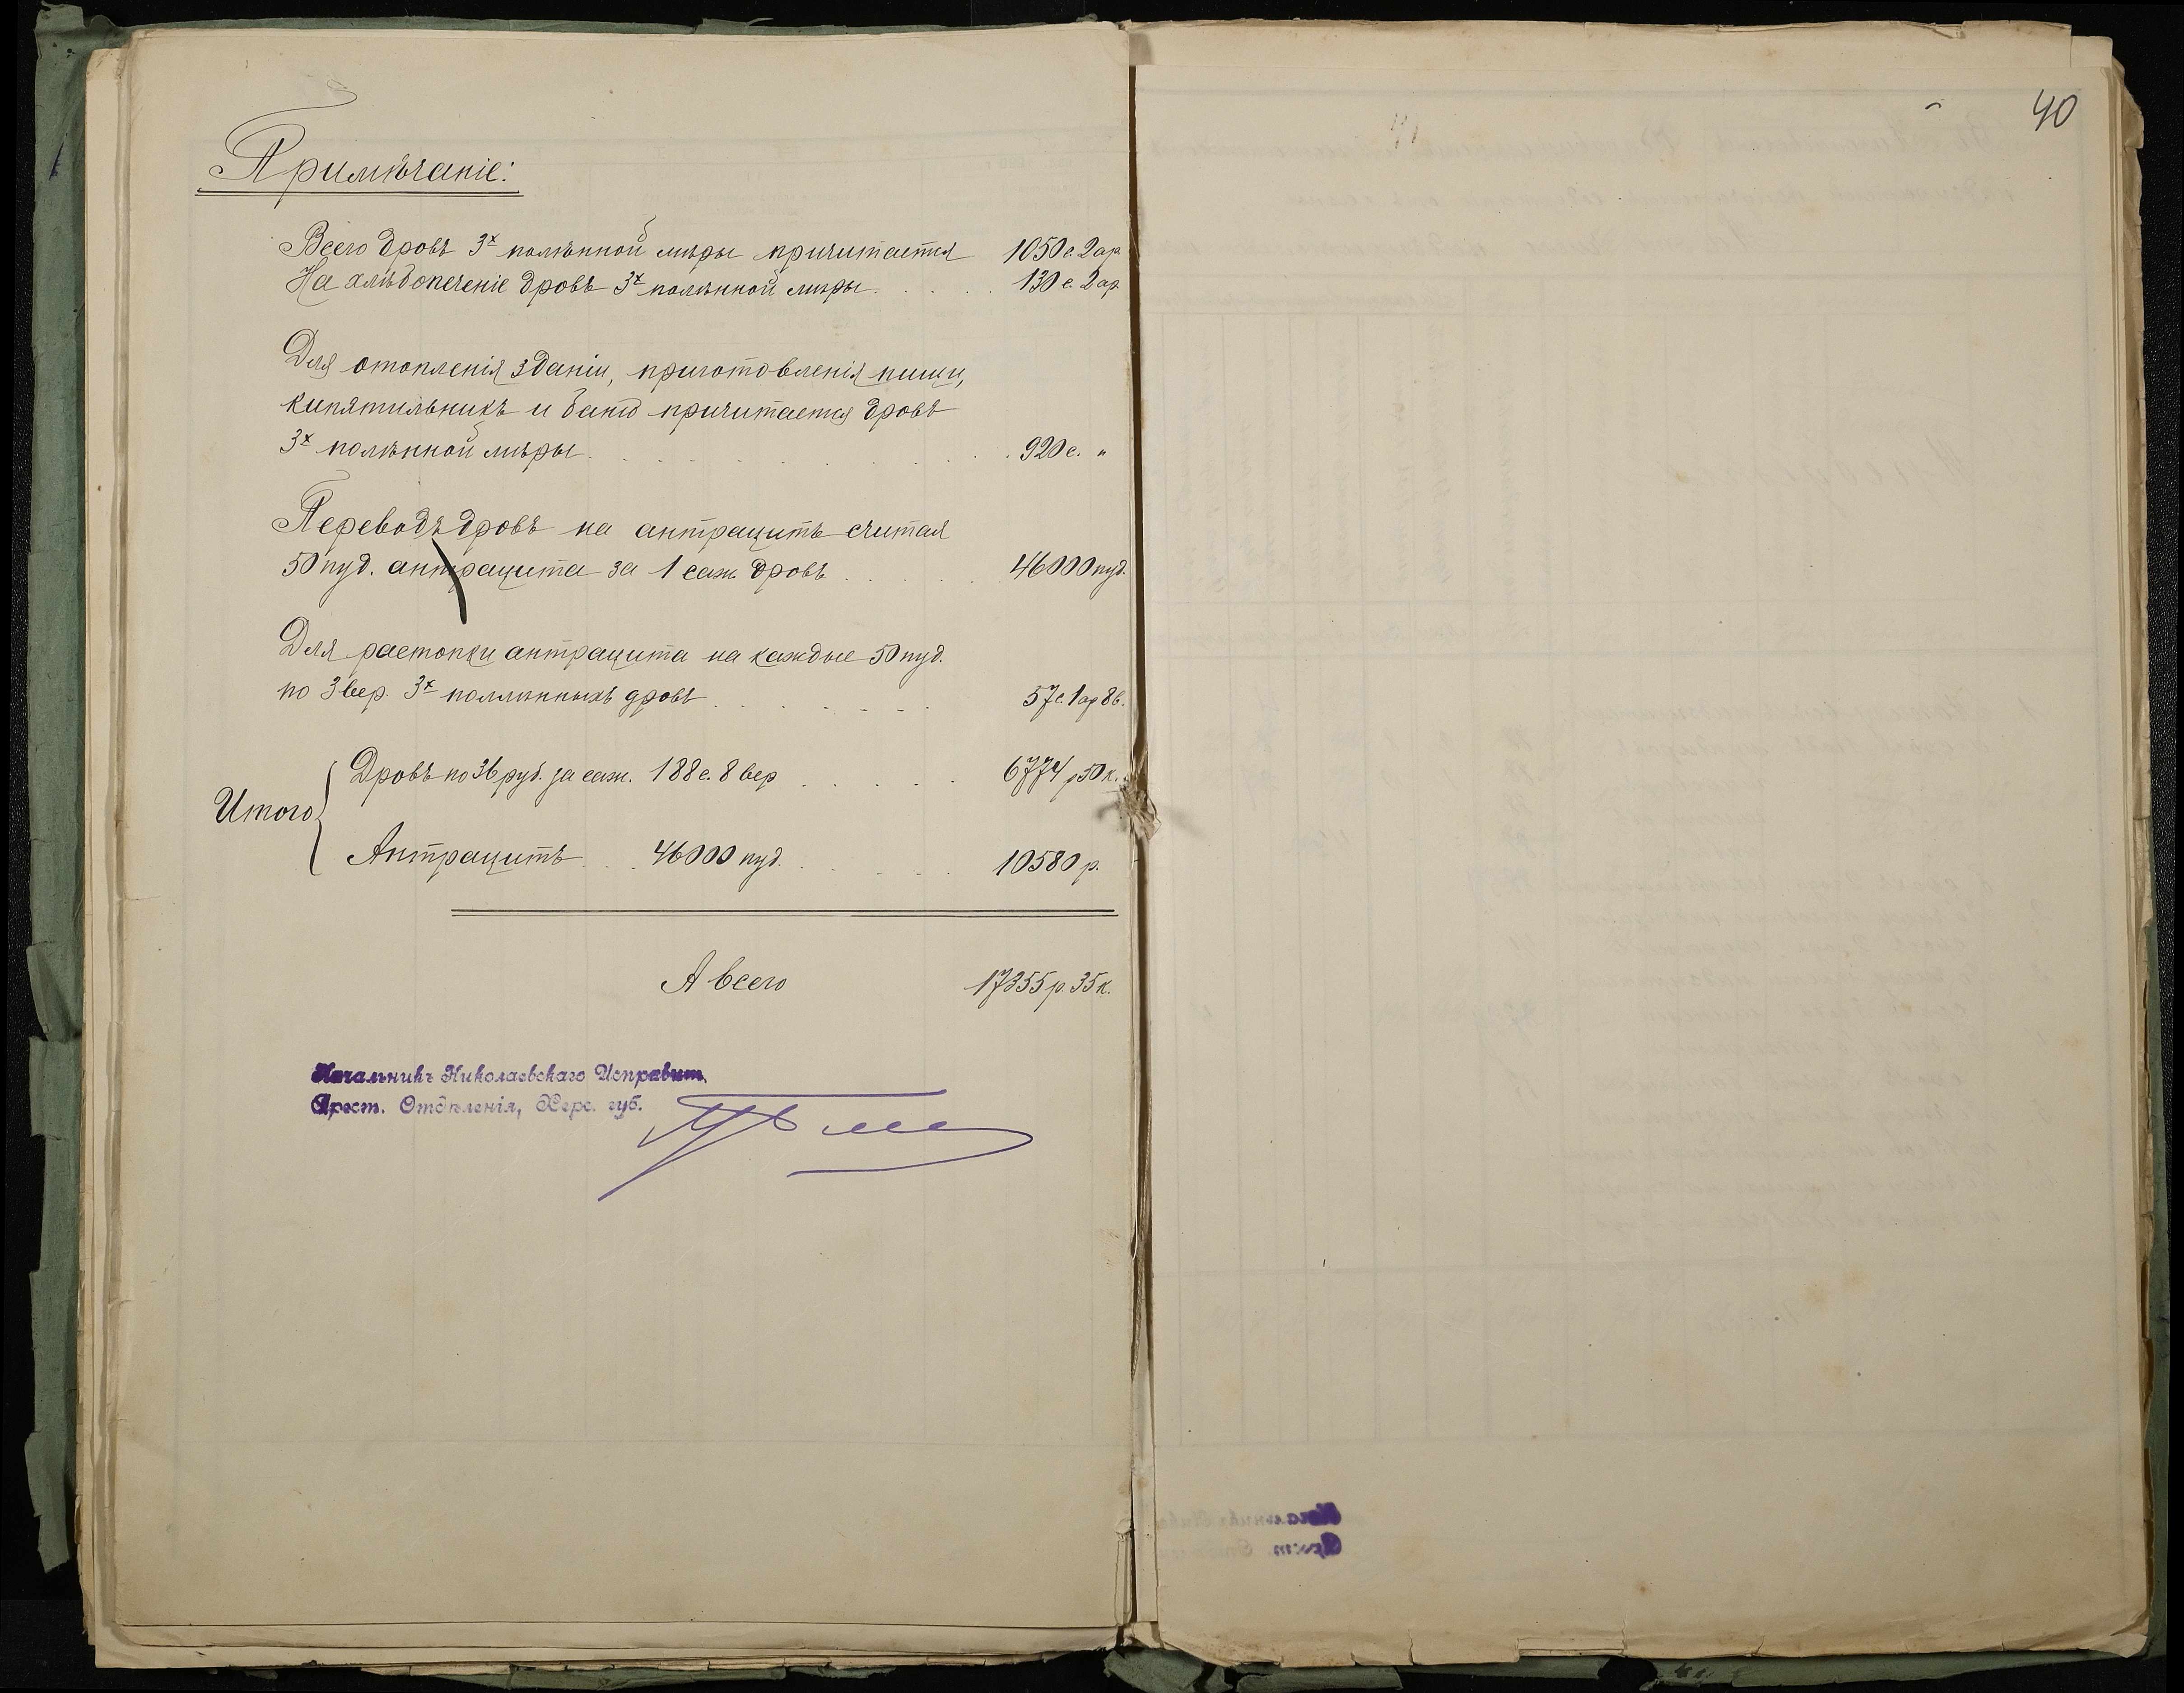 40
Примѣчаніе:
Всего дровъ 3х полѣнной мѣры причитается 1050 с. 2 ар
На хлѣбопеченіе дровъ 3х полѣнной мѣры . . . 130 с. 2 ар.
Для отопленія зданій, приготовленія пищи,
кипятильникъ и баню причитается дровъ
3х полѣнной мѣры . . . . . . . . 920 с. "
Переводъ дровъ на антрацитъ считая
50 пуд. антрацита за 1 саж. дровъ . . . . 46000 пуд.
Для растопки антрацита на каждые 50 пуд.
по 3 вер. 3х полѣнныхъ дровъ . . . . . . . 57 с. 1 ар 8 в.
Итого
Дровъ по 36 руб. за саж. 188 с. 8 вер . . . . . 6774 р 50 к.
Антрацитъ . . . 46000 пуд. . . . . . 10580 р.
А всего 17355 р. 35 к.
Начальникъ Николаевскаго Исправит.
Арест. Отдѣленія, Херс. губ.